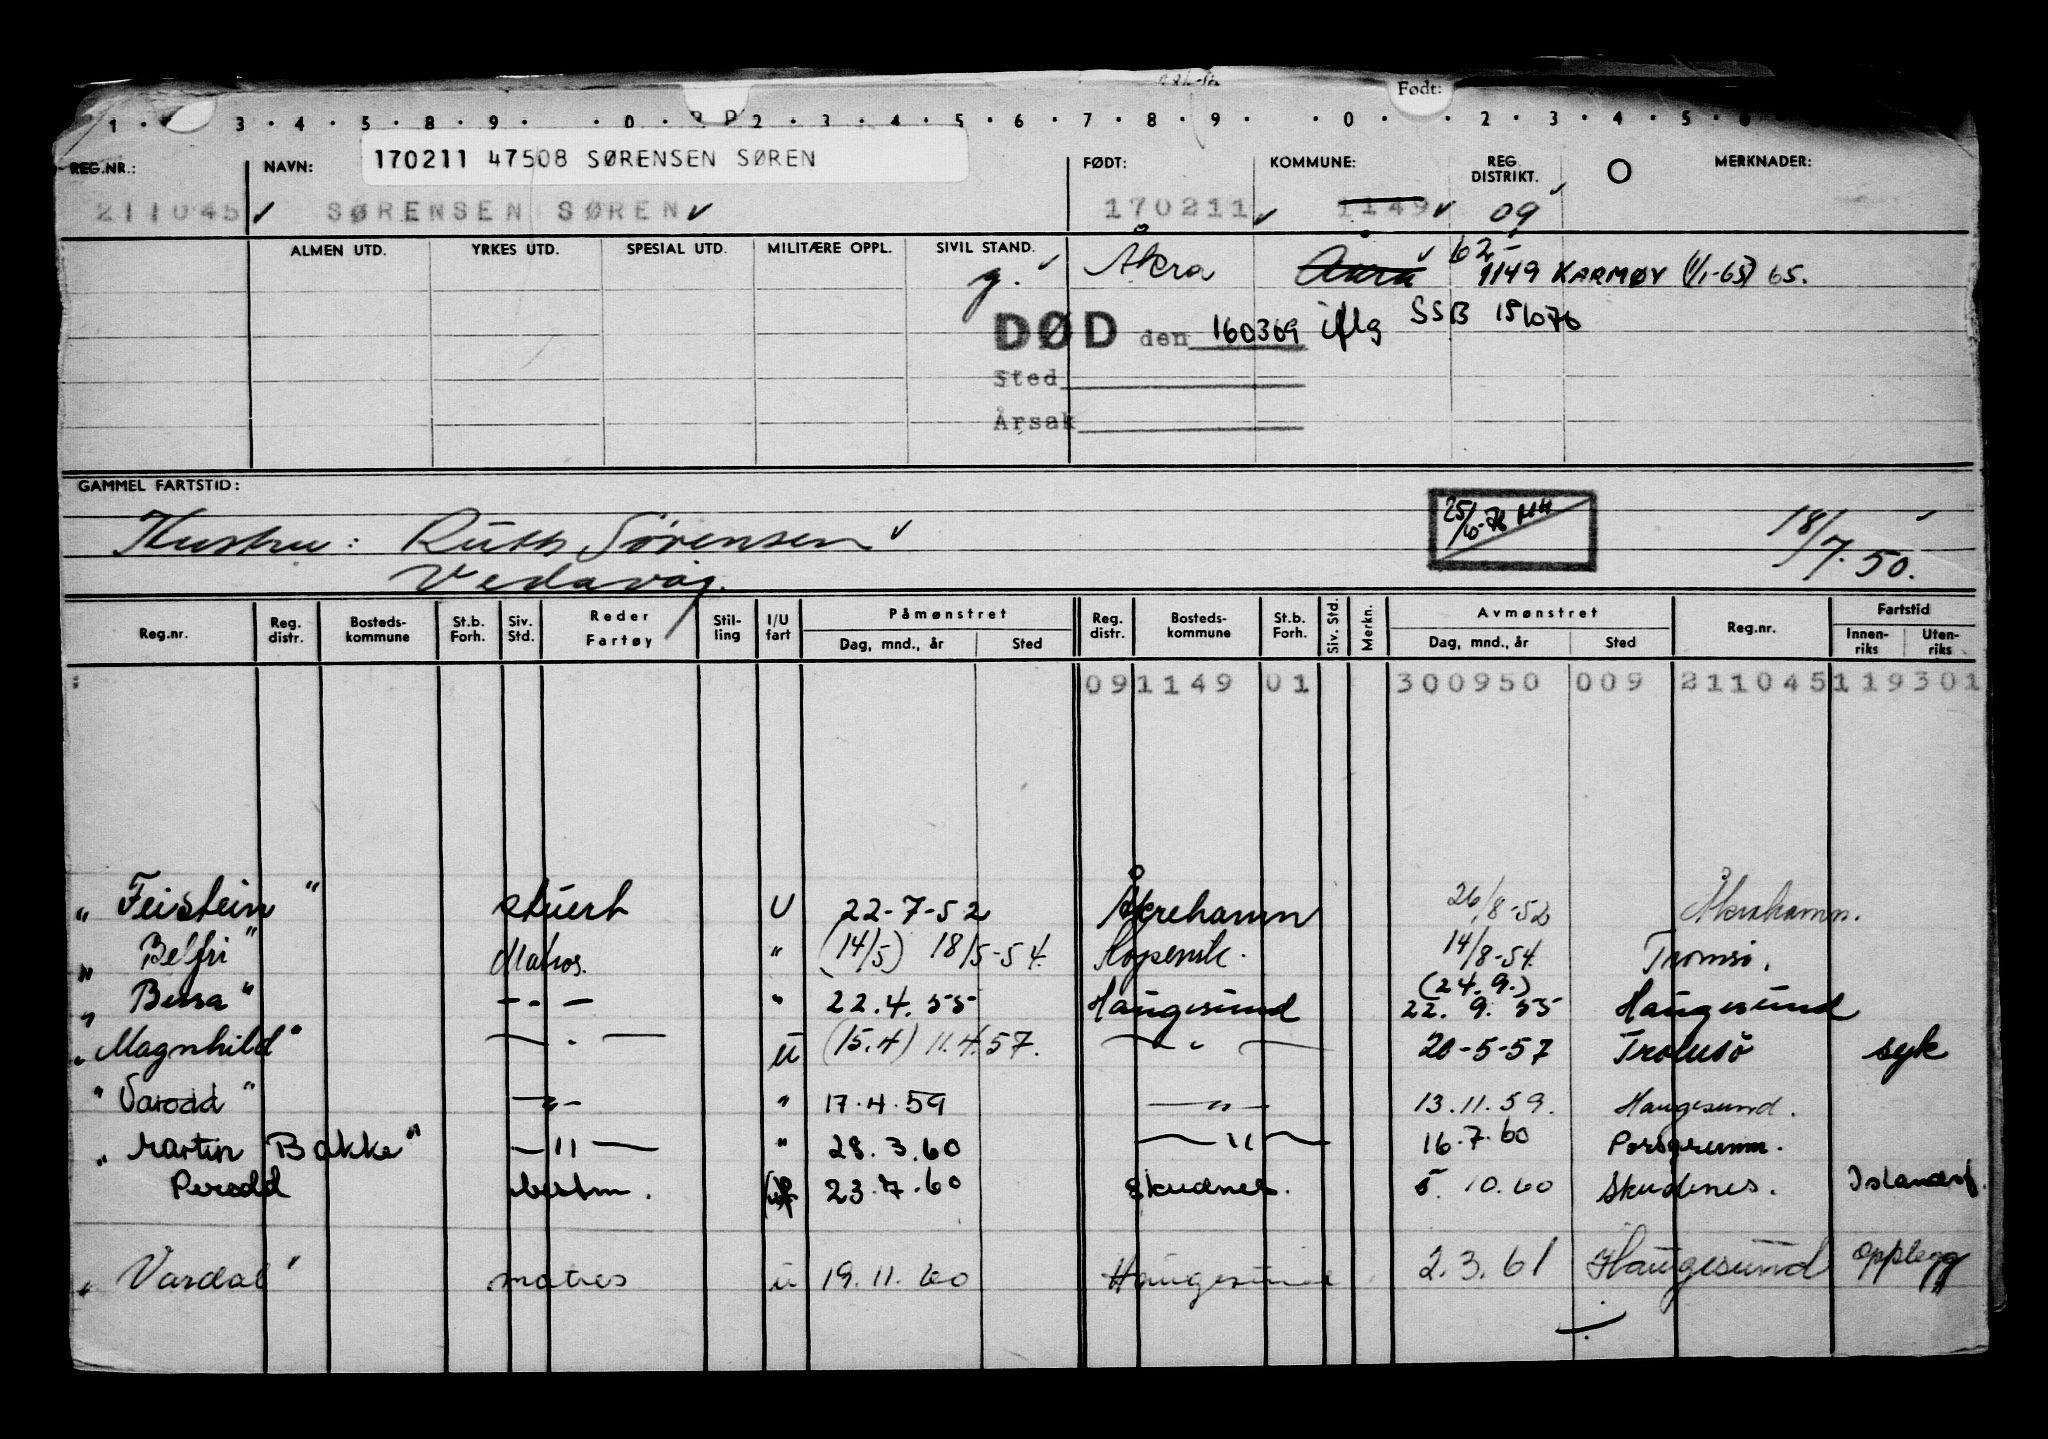 Født:
1 · 3 · 4 · 5 · 8 · 9 · · 0 · 2 · 3 · 4 · 5 · 6 · 7 · 8 · 9 · · 0 · · 2 · 3 · 4 · 5 · 6
170211 47508 SØRENSEN SØREN
REG.NR.: NAVN: FØDT: KOMMUNE: REG. DISTRIKT. MERKNADER:
211045 SØRENSEN SØREN 170211 1149 09
ALMEN UTD. YRKES UTD. SPESIAL UTD. MILITÆRE OPPL. SIVIL STAND.
g. Åkra 62 1149 KARMØY (1/1-65) 65.
DØD den 160369 iflg SSB 15/6 76
Sted
Årsak
GAMMEL FARTSTID:
Hustru: Ruth Sørensen 25/6-76 HH 18/7.50.
Vedavåg.
Reg.nr. Reg. distr. Bosteds-kommune St.b. Forh. Siv. Std. Reder Fartøy Stil-ling I/U fart Påmønstret Reg. distr. Bosteds-kommune St.b. Forh. Siv. Std. Merkn. Avmønstret Reg.nr. Fartstid
Dag, mnd., år Sted Dag, mnd., år Sted Innen-riks Uten-riks
091149 01 300950 009 211045 119301
"Feistein" stuert U 22-7-52 Åkrehamn 26/8-52 Åkrahamn.
"Belfri" Matros. " (14/5) 18/5-54. Kopervik. 14/8-54. Tromsø.
(24.9.)
"Bessa" - " - " 22.4.55 Haugesund 22.9.55 Haugesund
"Magnhild" - " - u (15.4) 11.4.57. - " - 20-5-57 Tromsö syk
"Varodd" - " - " 17.4.59 - " - 13.11.59. Haugesund.
"Martin Bakke" - " - " 28.3.60 - " - 16.7.60 Porsgrunn.
Perodd bestm. 23.7.60 Skudnes. 5.10.60 Skudenes. Islandsf.
"Vardal" matros u 19.11.60 Haugesund 2.3.61 Haugesund opplegg